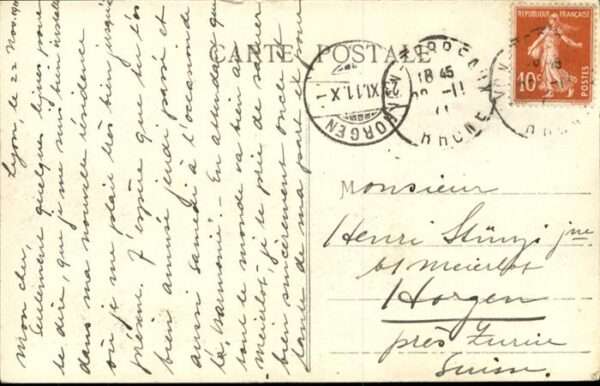 CARTE POSTALE
RÉPUBLIQUE FRANÇAISE
10c
18 45
-11
RHONE
HORGEN
XI.11.X-
Lyon, le 22 Nov. 1911
Mon cher,
Seulement quelques lignes pour
te dire, que je me suis bien installé
dans ma nouvelle résidence
où je me plais très bien jusqu'à
présent. J'espère que tu t'es
bien amusé jeudi passé et
aussi samedi à l'occasion de
la "Harmonie". En attendant que
tout le monde va bien au
Meierhof, je te prie de saluer
bien sincèrement oncle et
tante de ma part et pour
Monsieur
Henri Stünzi jne
Meierhof
Horgen
près Zurich
Suisse.